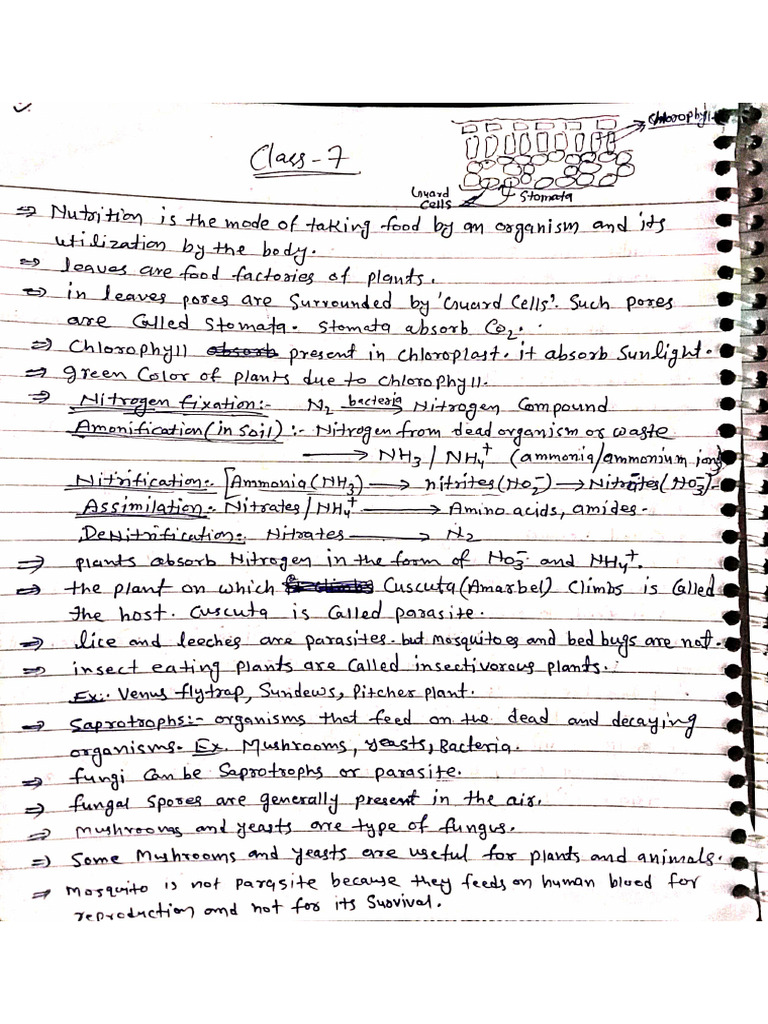 Chlorophyll
Class-7
Guard Cells
Stomata
⇒ Nutrition is the mode of taking food by an organism and its
utilization by the body.
⇒ leaves are food factories of plants.
⇒ in leaves pores are surrounded by 'Guard Cells'. Such pores
are Called Stomata. Stomata absorb CO2.
⇒ Chlorophyll absorb present in chloroplast. it absorb Sunlight.
⇒ green Color of plants due to chlorophyll.
⇒ Nitrogen fixation:- N2 bacteria → Nitrogen Compound
Amonification (in soil) :- Nitrogen from dead organism or waste
→ NH3 / NH4+ (ammonia/ammonium ion)
Nitrification:- [Ammonia (NH3) → nitrites (NO2-) → Nitrates (NO3-).
Assimilation:- Nitrates / NH4+ → Amino acids, amides.
DeNitrification:- Nitrates → N2
⇒ plants absorb Nitrogen in the form of NO3- and NH4+.
⇒ the plant on which Cuscuta (Amarbel) Climbs is Called
the host. Cuscuta is Called parasite.
⇒ lice and leeches are parasites. but mosquitoes and bed bugs are not.
⇒ insect eating plants are Called insectivorous plants.
Ex:- Venus flytrap, Sundews, Pitcher plant.
⇒ Saprotrophs:- organisms that feed on the dead and decaying
organisms. Ex. Mushrooms, yeasts, Bacteria.
⇒ fungi Can be Saprotrophs or parasite.
⇒ fungal spores are generally present in the air.
⇒ mushrooms and yeasts are type of fungus.
⇒ Some Mushrooms and yeasts are useful for plants and animals.
⇒ Mosquito is not parasite because they feeds on human blood for
reproduction and not for its Survival.